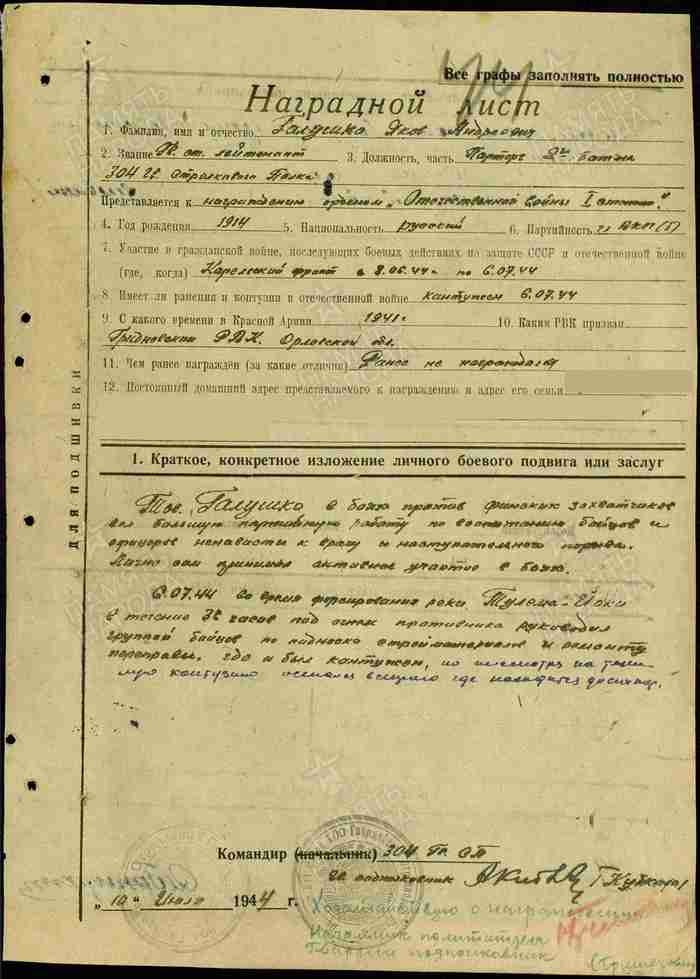 Все графы заполнять полностью
Наградной лист
1. Фамилия, имя и отчество Галушко Яков Андреевич
2. Звание Гв. ст. лейтенант 3. Должность, часть Парторг 2го бат-на
304 Гв. Стрелкового Полка
Представляется к награждению орденом „Отечественной войны I степени."
4. Год рождения 1914 5. Национальность русский 6. Партийность ВКП(б)
7. Участие в гражданской войне, последующих боевых действиях по защите СССР и отечественной войне
(где, когда) Карельский фронт с 8.06.44 по 6.07.44
8. Имеет ли ранения и контузии в отечественной войне контужен 6.07.44
9. С какого времени в Красной Армии 1941г. 10. Каким РВК призван
РВК. Орловской обл.
11. Чем ранее награжден (за какие отличия) Ранее не награждался
12. Постоянный домашний адрес представляемого к награждению и адрес его семьи
ДЛЯ ПОДШИВКИ
1. Краткое, конкретное изложение личного боевого подвига или заслуг
Тов. Галушко в боях против финских захватчиков
вел большую партийную работу по воспитанию бойцов и
офицеров ненависти к врагу и наступательного порыва.
Лично сам принимал активное участие в боях.
6.07.44 во время форсирования реки Тулема-Йоки
в течение часов под огнем противника руководил
группой бойцов по подноске стройматериалов и ремонту
переправы, где и был контужен, но несмотря на
контузию остался в строю где находится до сих пор.
Командир (начальник) 304 Гв. СП
Гв. подполковник
„10" Июля 1944 г.
Ходатайствую о награждении
Начальник политотдела
Гвардии подполковник